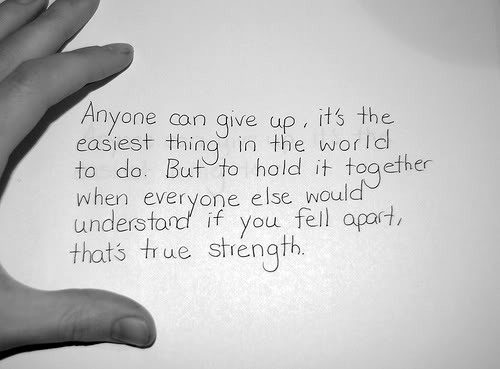 Anyone can give up, it's the
easiest thing in the world
to do. But to hold it together
when everyone else would
understand if you fell apart,
that's true strength.